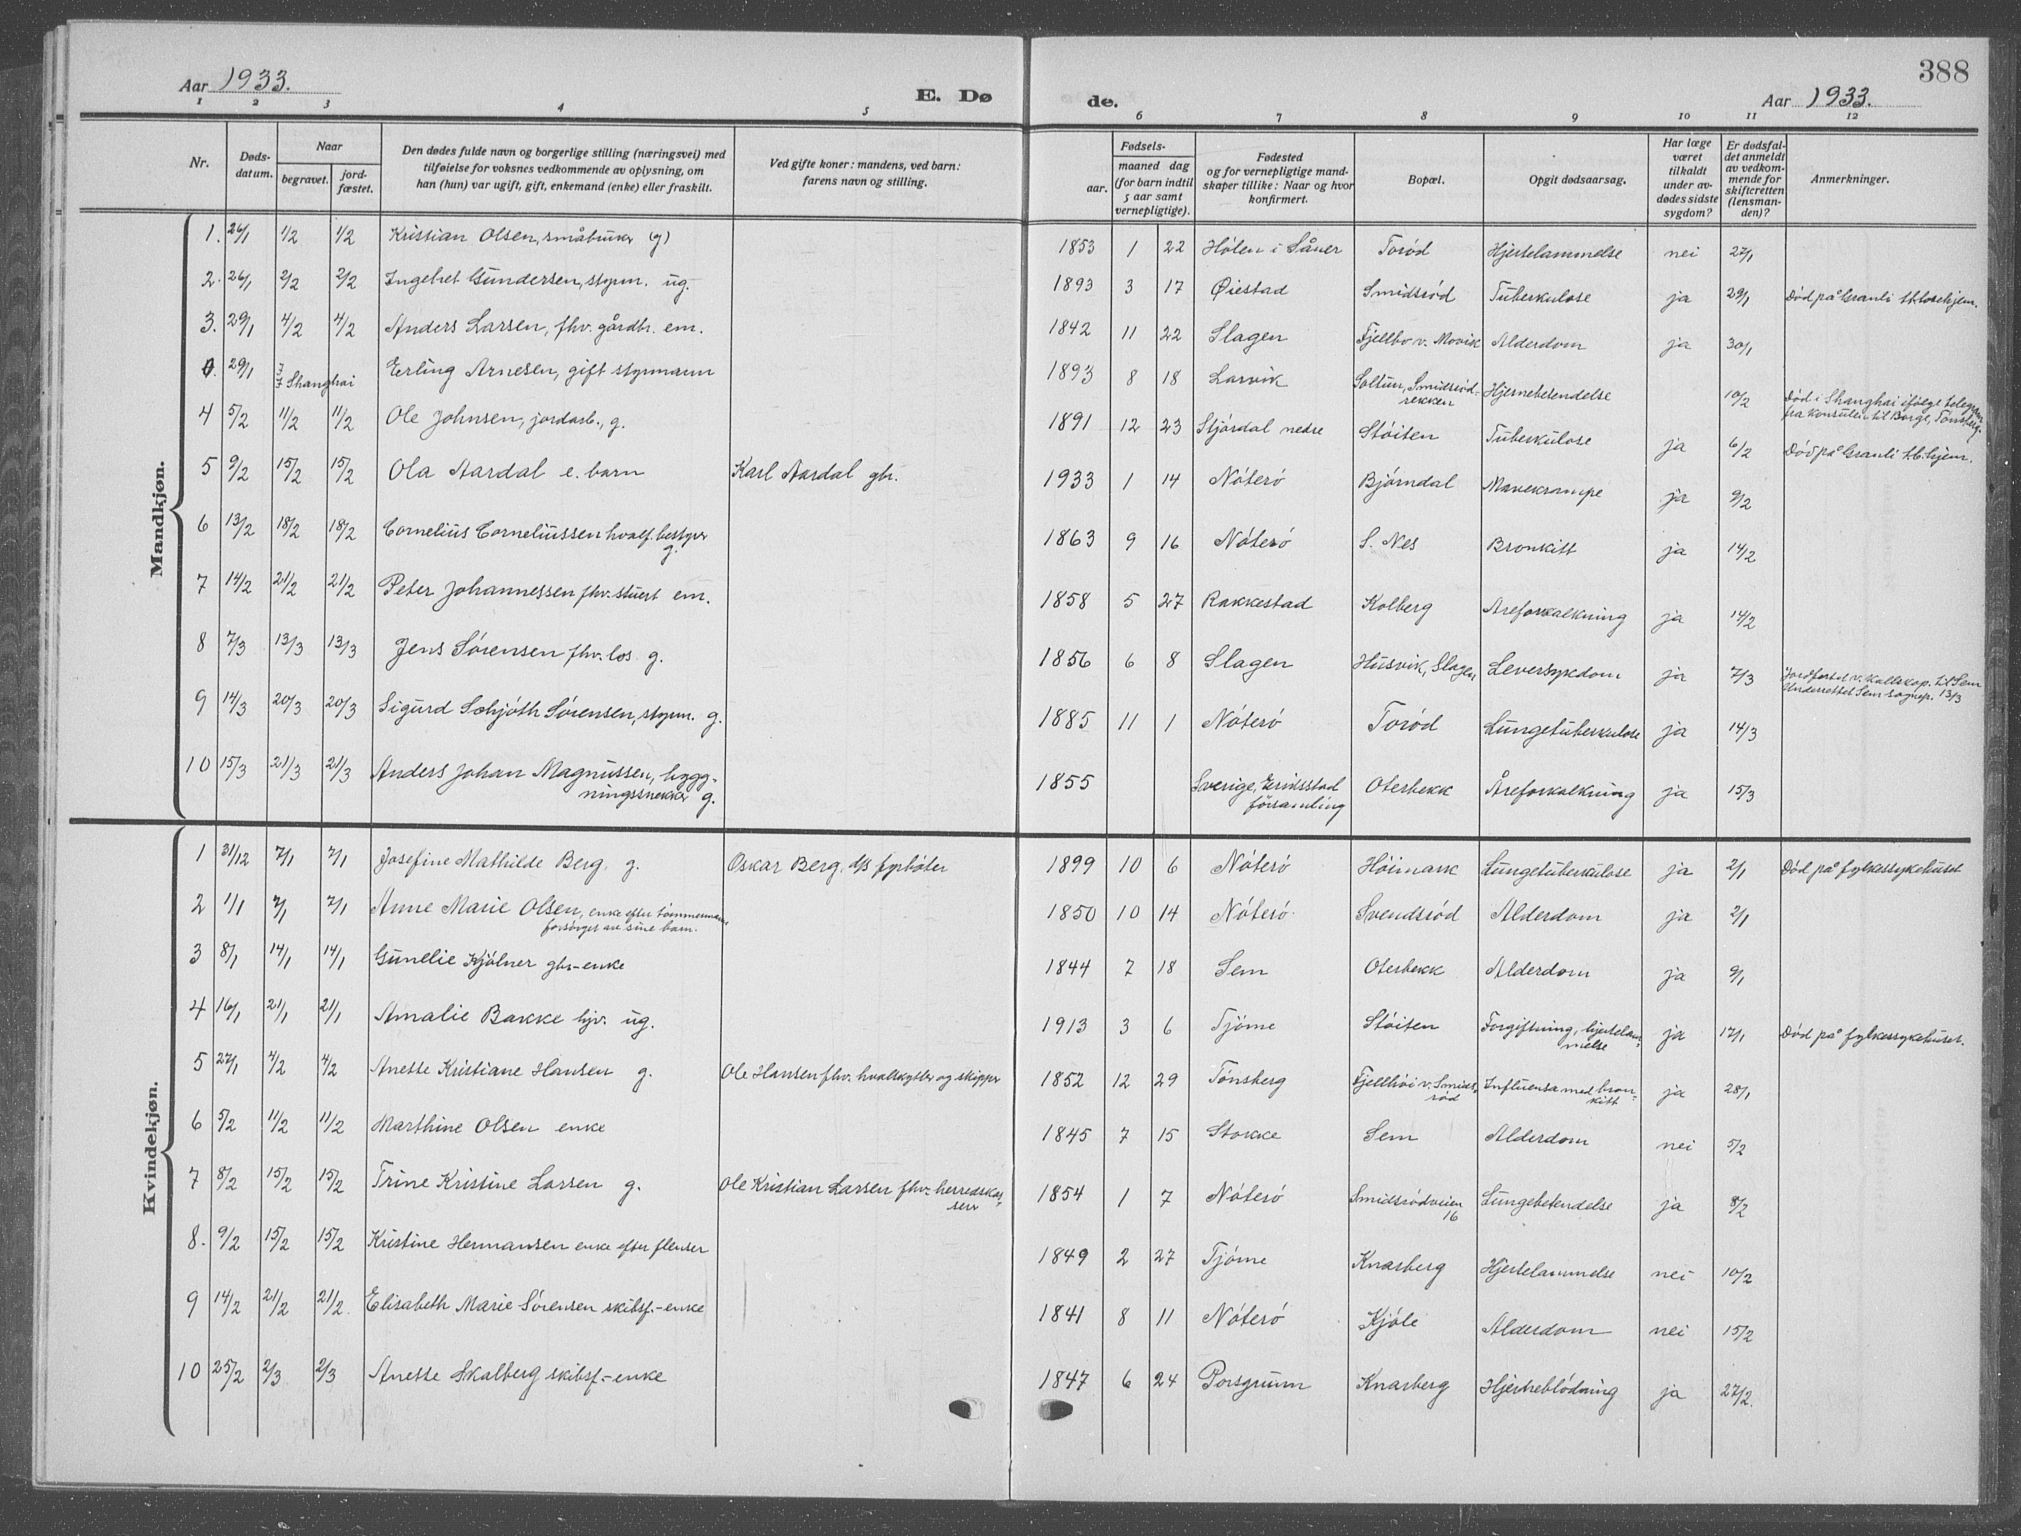 388
Aar 1933.
E. Døde.
Aar 1933.
1 2 3 4 5 6 7 8 9 10 11 12
Nr.
Døds-
datum.
Naar
begravet.
jord-
fæstet.
Den dødes fulde navn og borgerlige stilling (næringsvei) med
tilføielse for voksnes vedkommende av oplysning, om
han (hun) var ugift, gift, enkemand (enke) eller fraskilt.
Ved gifte koner: mandens, ved barn:
farens navn og stilling.
Fødsels-
aar. maaned dag
(for barn indtil
5 aar samt
vernepligtige).
Fødested
og for vernepligtige mand-
skaper tillike: Naar og hvor
konfirmert.
Bopæl.
Opgit dødsaarsag.
Har læge
været
tilkaldt
under av-
dødes sidste
sygdom?
Er dødsfal-
det anmeldt
av vedkom-
mende for
skifteretten
(lensman-
den)?
Anmerkninger.
Mandkjøn.
1. 26/1 1/2 1/2 Kristian Olsen, småbruker (g) 1853 1 22 Hølen i Såner Torød Hjertelammelse nei 27/1
2. 26/1 2/2 2/2 Ingebret Gundersen, styrm. ug. 1893 3 17 Øiestad Smidsrød Tuberkulose ja 29/1 Død på Granli tb.losehjem.
3. 29/1 4/2 4/2 Anders Larsen, fhv. gårdbr. em. 1842 11 22 Slagen Fjellbo v. Movik Alderdom ja 30/1
0. 29/1 Shanghai Erling Arnesen, gift styrmann 1893 8 18 Larvik Soltun, Smidsrød-
rekken Hjernebetendelse 10/2 Død i Shanghai ifølge telegram
fra konsulen til Borge, Tønsberg.
4 5/2 11/2 11/2 Ole Johnsen, jordarb., g. 1891 12 23 Stjørdal nedre Støiten Tuberkulose ja 6/2 Død på Granli tb.hjem.
5 9/2 15/2 15/2 Ola Aardal e. barn Karl Aardal gbr. 1933 1 14 Nøterø Bjørndal Mavekrampe ja 9/2
6 13/2 18/2 18/2 Cornelius Corneliussen hvalf. bestyrer
g. 1863 9 16 Nøterø S. Nes Bronkitt ja 14/2
7 14/2 21/2 21/2 Peter Johannessen fhv. stuert em. 1858 5 27 Rakkestad Kolberg Areforkalkning ja 14/2
8 7/3 13/3 13/3 Jens Sørensen fhv. los g. 1856 6 8 Slagen Husvik, Slagen Leversykdom ja 7/3 Jordfæstet v. kallskap. til Sem
Underrettet Sem sognep. 13/3
9 14/3 20/3 20/3 Sigurd Schjøth Sørensen, styrm. g. 1885 11 1 Nøterø Torød Lungetuberkulose ja 14/3
10 15/3 21/3 21/3 Anders Johan Magnussen, bygg-
ningssnekker g. 1855 Sverige, Eriksstad
församling Oterbekk Åreforkalkning ja 15/3
Kvindekjøn.
1 31/12 7/1 7/1 Josefine Mathilde Berg, g. Oskar Berg, d/s fyrbøter 1899 10 6 Nøterø Høimark Lungetuberkulose ja 2/1 Død på fylkessykehuset
2 1/1 7/1 7/1 Anne Marie Olsen, enke efter tømmermann
forsørget av sine barn. 1850 10 14 Nøterø. Svendsrød Alderdom ja 2/1
3 8/1 14/1 14/1 Gunelie Kjølner gbr-enke 1844 7 18 Sem Oterbekk Alderdom ja 9/1
4 16/1 21/1 21/1 Amalie Bakke hjv. ug. 1913 3 6 Tjøme Støiten Forgiftning, hjertelam-
melse ja 17/1 Død på fylkessykehuset.
5 27/1 4/2 4/2 Anette Kristiane Hansen g. Ole Hansen fhv. hvalskytter og skipper 1852 12 29 Tønsberg Fjellhøi v. Smids-
rød Influensa med bron-
kitt ja 28/1
6 5/2 11/2 11/2 Marthine Olsen enke 1845 7 15 Stokke Sem Alderdom nei 5/2
7 8/2 15/2 15/2 Trine Kristine Larsen g. Ole Kristian Larsen fhv. herredskas-
serer 1854 1 7 Nøterø Smidsrødveien
16 Lungebetendelse ja 8/2
8. 9/2 15/2 15/2 Kristine Hermansen enke efter flenser 1849 2 27 Tjøme Knarberg Hjertelammelse nei 10/2
9 14/2 21/2 21/2. Elisabeth Marie Sørensen skibsf.-enke 1841 8 11 Nøterø Kjøle Alderdom nei 15/2
10 25/2 2/3 2/3 Anette Skalberg skibsf.-enke 1847 6 24 Porsgrunn Knarberg Hjerneblødning ja 27/2.